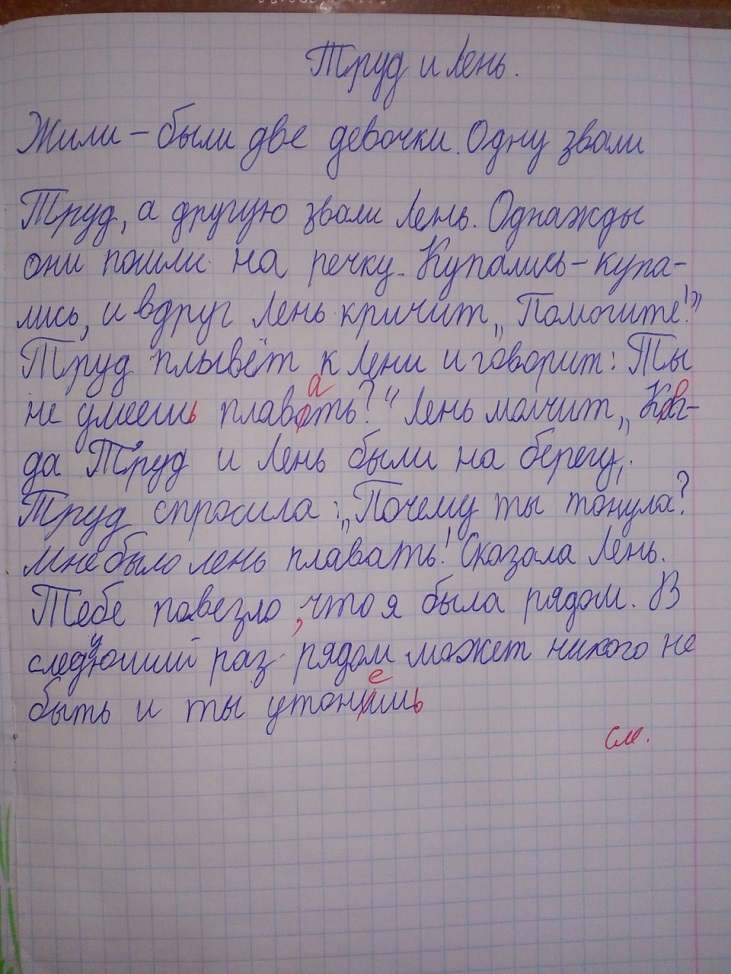 Труд и Лень.
Жили – были две девочки. Одну звали
Труд, а другую звали Лень. Однажды
они пошли на речку. Купались – купа-
лись, и вдруг Лень кричит „Помогите!”
Труд плывёт к Лени и говорит: Ты
не умеешь плавать?" Лень молчит „Ког-
да Труд и Лень были на берегу,
Труд спросила: „Почему ты тонула?
Мне было лень плавать! Сказала Лень.
Тебе повезло, что я была рядом. В
следующий раз рядом может никого не
быть и ты утонешь
см.